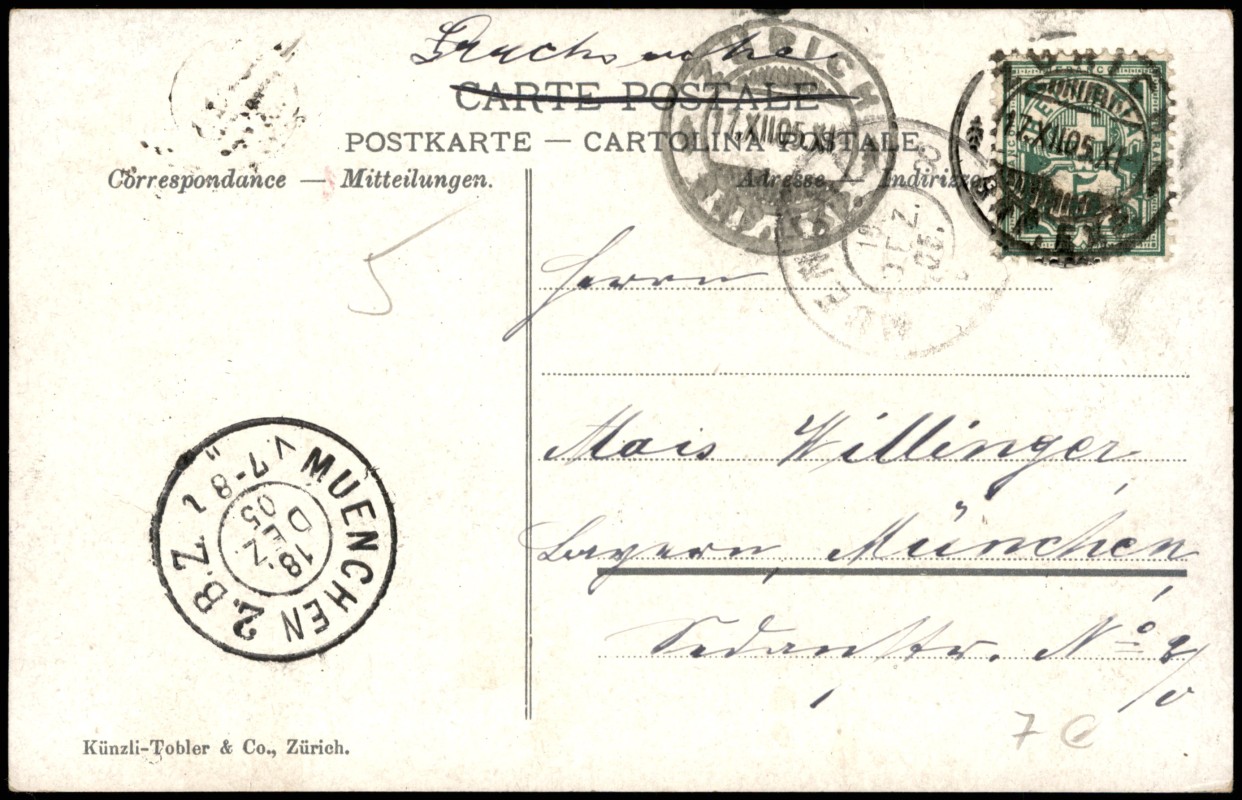 Drucksache
CARTE POSTALE
POSTKARTE — CARTOLINA POSTALE
Correspondance — Mitteilungen.
Adresse — Indirizzo
ZÜRICH
17.XII.05.XI
17.XII.05.XI
5
MUENCHEN
18. DEZ. 05
Herrn
Mois Willinger
Bayern, München
Sedanstr. No
MUENCHEN 2. B.Z.
7-8
18. DEZ. 05
Künzli-Tobler & Co., Zürich.
7